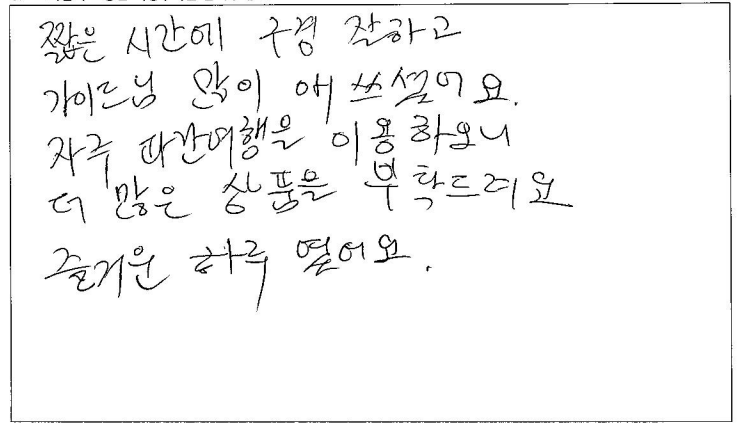 짧은 시간에 구경 잘하고
가이드님 많이 애쓰셨어요.
자주 다간여행을 이용하오니
더 많은 상품을 부탁드려요
즐거운 하루 였어요.